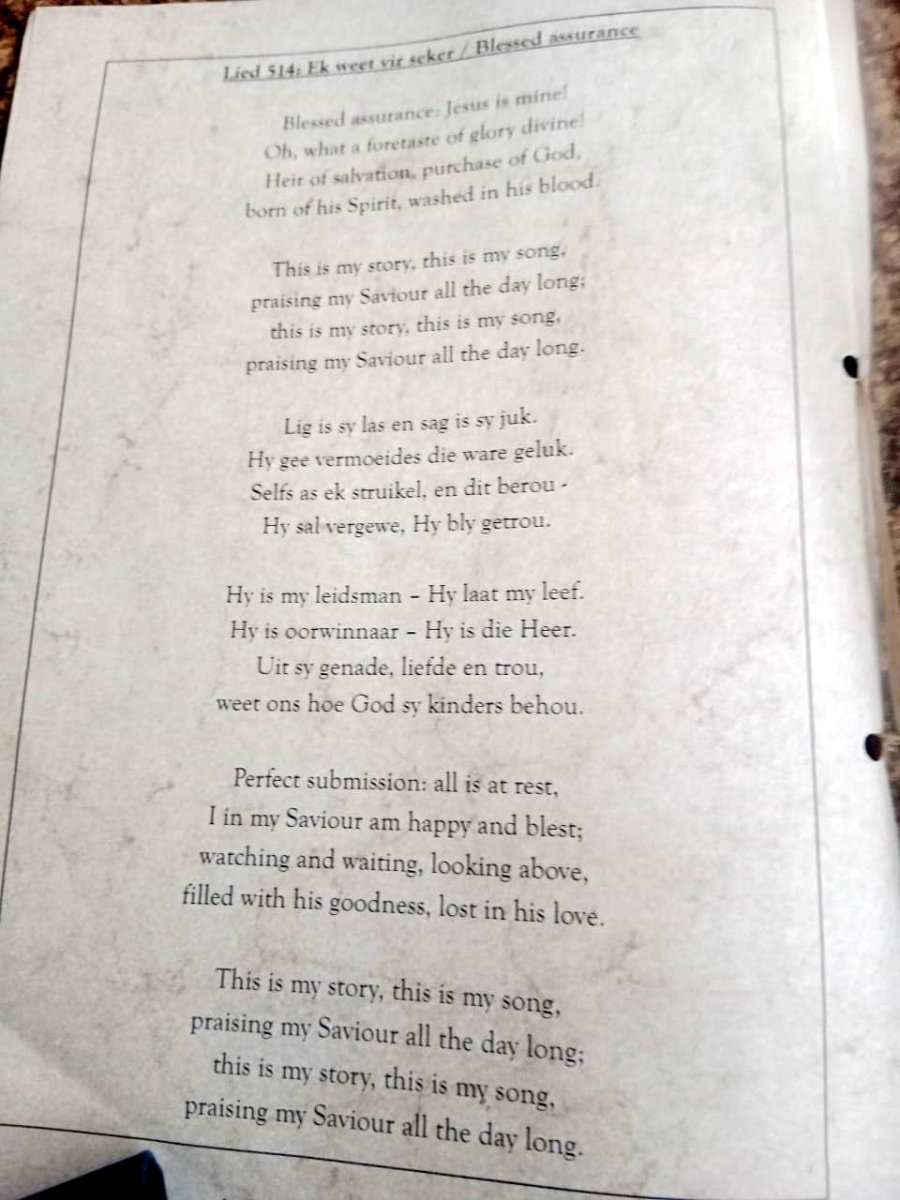 Lied 514: Ek weet vir seker / Blessed assurance
Blessed assurance: Jesus is mine!
Oh, what a foretaste of glory divine!
Heir of salvation, purchase of God,
born of his Spirit, washed in his blood.
This is my story, this is my song,
praising my Saviour all the day long;
this is my story, this is my song,
praising my Saviour all the day long.
Lig is sy las en sag is sy juk.
Hy gee vermoeides die ware geluk.
Selfs as ek struikel, en dit berou -
Hy sal vergewe, Hy bly getrou.
Hy is my leidsman – Hy laat my leef.
Hy is oorwinnaar – Hy is die Heer.
Uit sy genade, liefde en trou,
weet ons hoe God sy kinders behou.
Perfect submission: all is at rest,
I in my Saviour am happy and blest;
watching and waiting, looking above,
filled with his goodness, lost in his love.
This is my story, this is my song,
praising my Saviour all the day long;
this is my story, this is my song,
praising my Saviour all the day long.